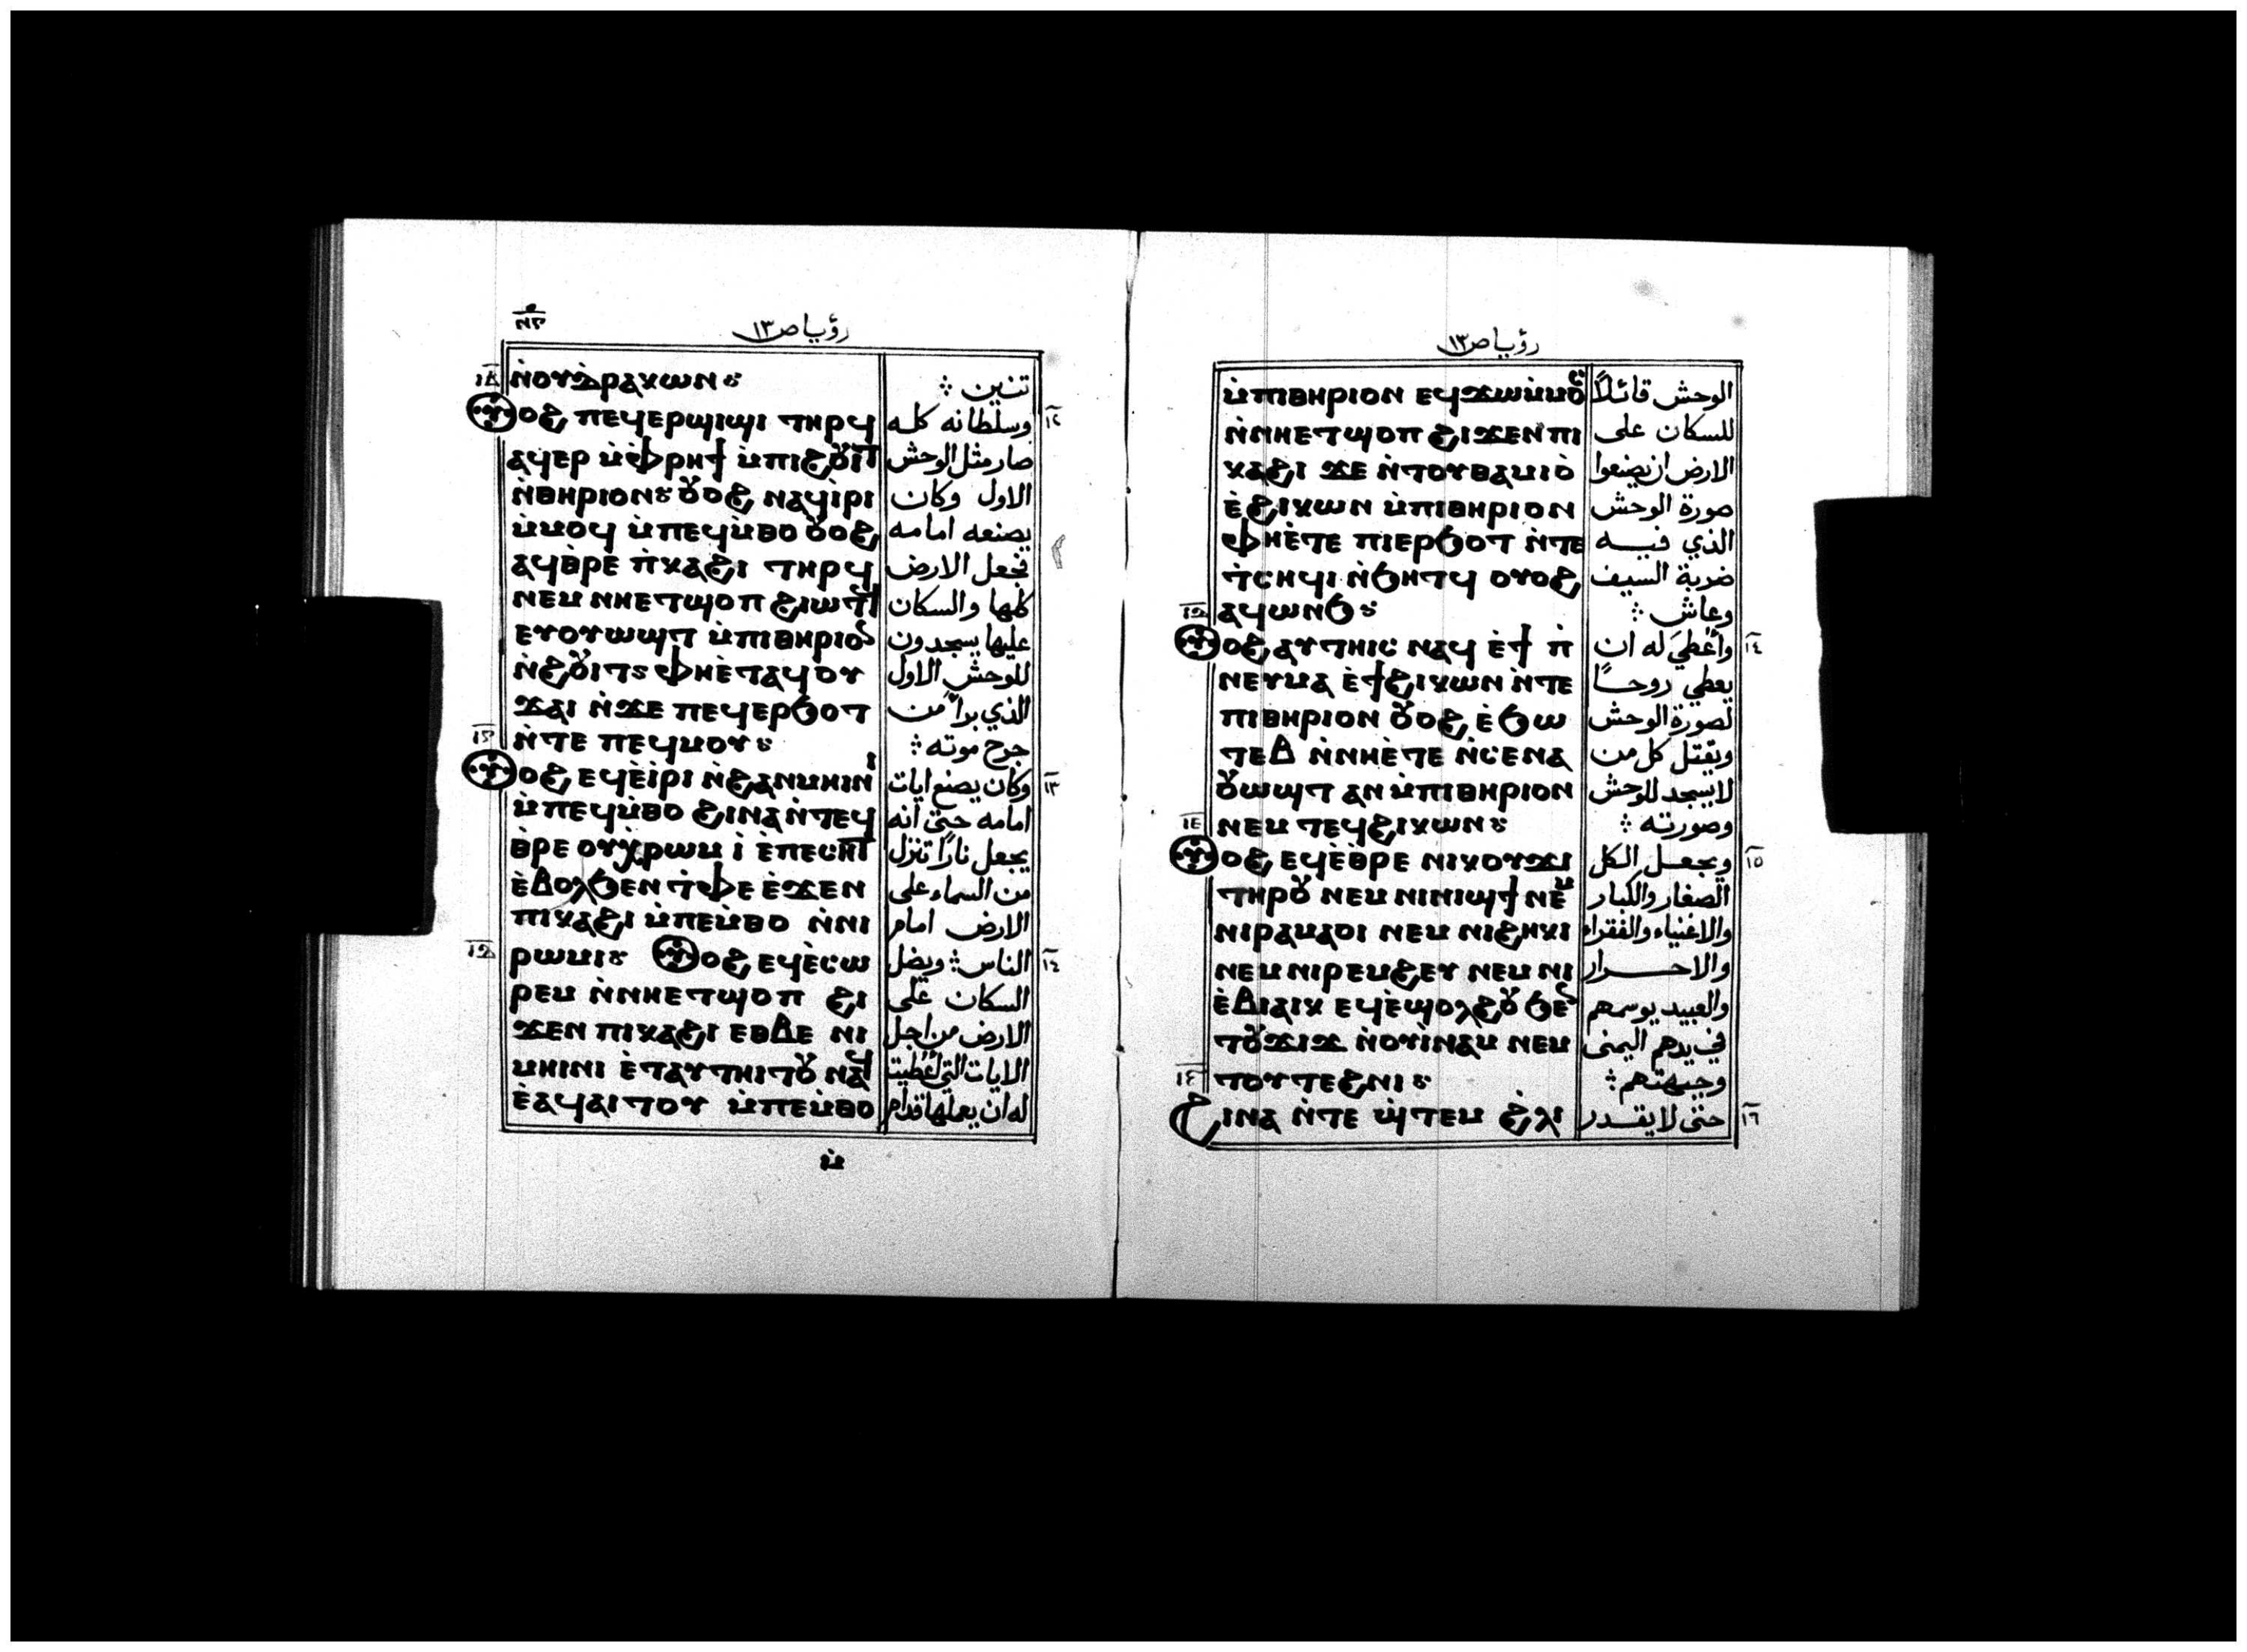 رؤيا ص ١٣
ⲛ̀ⲟⲩⲇⲣⲁⲕⲱⲛ:
ⲟⲩⲟϩ ⲡⲉϥⲉⲣϣⲓϣⲓ ⲧⲏⲣϥ
ⲁϥⲉⲣ ⲙ̀ⲫ̀ⲣⲏϯ ⲙ̀ⲡⲓϩⲟⲩⲓⲧ
ⲛ̀ⲑⲏⲣⲓⲟⲛ: ⲟⲩⲟϩ ⲛⲁϥⲓ̀ⲣⲓ
ⲙ̀ⲙⲟϥ ⲙ̀ⲡⲉϥⲙ̀ⲑⲟ ⲟⲩⲟϩ
ⲁϥⲑ̀ⲣⲉ ⲡ̀ⲕⲁϩⲓ ⲧⲏⲣϥ
ⲛⲉⲙ ⲛⲏⲉⲧϣⲟⲡ ϩⲓⲱⲧϥ
ⲉⲩⲟⲩⲱϣⲧ ⲙ̀ⲡⲓⲑⲏⲣⲓⲟⲛ
ⲛ̀ϩⲟⲩⲓⲧ: ⲫⲏⲉ̀ⲧⲁϥⲟⲩ
ϫⲁⲓ ⲛ̀ϫⲉ ⲡⲉϥⲉⲣϧⲟⲧ
ⲛ̀ⲧⲉ ⲡⲉϥⲙⲟⲩ:
ⲟⲩⲟϩ ⲉϥⲉ̀ⲓ̀ⲣⲓ ⲛ̀ϩⲁⲛⲙⲏⲓⲛⲓ
ⲙ̀ⲡⲉϥⲙ̀ⲑⲟ ϩⲓⲛⲁ ⲛ̀ⲧⲉϥ
ⲑ̀ⲣⲉ ⲟⲩⲭ̀ⲣⲱⲙ ⲓ̀ ⲉ̀ⲡⲉⲥⲏⲧ
ⲉ̀ⲃⲟⲗϧⲉⲛ ⲧ̀ⲫⲉ ⲉ̀ϫⲉⲛ
ⲡⲓⲕⲁϩⲓ ⲙ̀ⲡⲉⲙ̀ⲑⲟ ⲛ̀ⲛⲓ
ⲣⲱⲙⲓ: ⲟⲩⲟϩ ⲉϥⲉ̀ⲥⲱ
ⲣⲉⲙ ⲛ̀ⲛⲏⲉⲧϣⲟⲡ ϩⲓ
ϫⲉⲛ ⲡⲓⲕⲁϩⲓ ⲉⲑⲃⲉ ⲛⲓ
ⲙⲏⲓⲛⲓ ⲉ̀ⲧⲁⲩⲧⲏⲓⲧⲟⲩ ⲛⲁϥ
ⲉ̀ⲁϥⲁⲓⲧⲟⲩ ⲙ̀ⲡⲉⲙ̀ⲑⲟ
تنين :
١٢ وسلطانه كله
صار مثل الوحش
الاول وكان
يصنعه امامه
فجعل الارض
كلها والسكان
عليها يسجدون
للوحش الاول
الذي برأ من
جرح موته :
١٣ وكان يصنع ايات
امامه حتى انه
يجعل نارًا تنزل
من السماء على
الارض امام
١٤ الناس : ويضل
السكان على
الارض من اجل
الايات التي اعطيت
له ان يعملها قدام
ⲙ̀
رؤيا ص ١٣
ⲙ̀ⲡⲓⲑⲏⲣⲓⲟⲛ ⲉϥϫⲱⲙ̀ⲙⲟⲥ
ⲛ̀ⲛⲏⲉⲧϣⲟⲡ ϩⲓϫⲉⲛ ⲡⲓ
ⲕⲁϩⲓ ϫⲉ ⲛ̀ⲧⲟⲩⲑⲁⲙⲓⲟ̀
ⲉ̀ϩⲓⲕⲱⲛ ⲙ̀ⲡⲓⲑⲏⲣⲓⲟⲛ
ⲫⲏⲉ̀ⲧⲉ ⲡⲓⲉⲣϧⲟⲧ ⲛ̀ⲧⲉ
ⲧ̀ⲥⲏϥⲓ ⲛ̀ϧⲏⲧϥ ⲟⲩⲟϩ
ⲁϥⲱⲛϧ:
ⲟⲩⲟϩ ⲁⲩⲧⲏⲓⲥ ⲛⲁϥ ⲉ̀ϯ ⲡ̀
ⲛⲉⲩⲙⲁ ⲉ̀ϯϩⲓⲕⲱⲛ ⲛ̀ⲧⲉ
ⲡⲓⲑⲏⲣⲓⲟⲛ ⲟⲩⲟϩ ⲉ̀ϧⲱ
ⲧⲉⲃ ⲛ̀ⲛⲏⲉ̀ⲧⲉ ⲛ̀ⲥⲉⲛⲁ
ⲟⲩⲱϣⲧ ⲁⲛ ⲙ̀ⲡⲓⲑⲏⲣⲓⲟⲛ
ⲛⲉⲙ ⲧⲉϥϩⲓⲕⲱⲛ:
ⲟⲩⲟϩ ⲉϥⲉ̀ⲑ̀ⲣⲉ ⲛⲓⲕⲟⲩϫⲓ
ⲧⲏⲣⲟⲩ ⲛⲉⲙ ⲛⲓⲛⲓϣϯ ⲛⲉⲙ
ⲛⲓⲣⲁⲙⲁⲟⲓ ⲛⲉⲙ ⲛⲓϩⲏⲕⲓ
ⲛⲉⲙ ⲛⲓⲣⲉⲙϩⲉⲩ ⲛⲉⲙ ⲛⲓ
ⲉ̀ⲃⲓⲁⲓⲕ ⲉϥⲉ̀ϣⲟⲗϩⲟⲩ ϧⲉⲛ
ⲧⲟⲩϫⲓϫ ⲛ̀ⲟⲩⲓ̀ⲛⲁⲙ ⲛⲉⲙ
ⲧⲟⲩⲧⲉϩⲛⲓ:
ϩⲓⲛⲁ ⲛ̀ⲧⲉ ϣ̀ⲧⲉⲙ ϩ̀ⲗⲓ
الوحش قائلاً
للسكان على
الارض ان يصنعوا
صورة الوحش
الذي فيه
ضربة السيف
وعاش :
١٤ وأعطيَ له ان
يعطي روحًا
لصورة الوحش
ويقتل كل من
لا يسجد للوحش
وصورته :
١٥ ويجعل الكل
الصغار والكبار
والاغنياء والفقراء
والاحرار
والعبيد يوسمهم
في يدهم اليمنى
وجبهتهم :
١٦ حتى لا يقدر